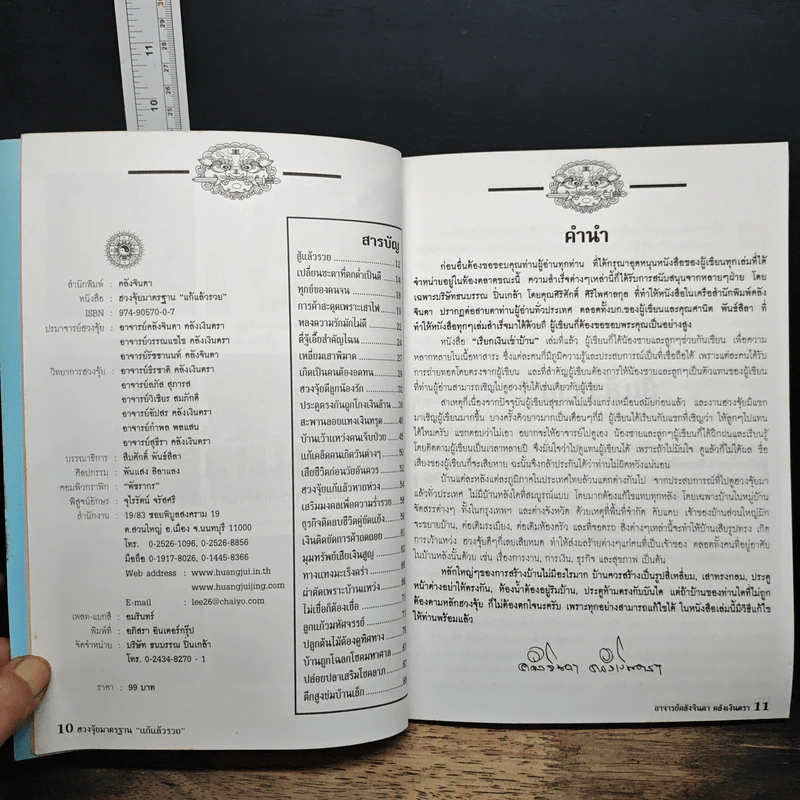 สำนักพิมพ์ : คลังจินดา
หนังสือ : ฮวงจุ้ยมาตรฐาน "แก้แล้วรวย"
ISBN : 974-90570-0-7
ปรมาจารย์ฮวงจุ้ย : อาจารย์คลังจินดา คลังเงินตรา
อาจารย์วรรณแขไข คลังเงินตรา
อาจารย์รัชชานนท์ คลังจินดา
วิทยาการฮวงจุ้ย : อาจารย์ธีรชาติ คลังเงินตรา
อาจารย์อภัส สุภารส
อาจารย์วิเชียร สมภักดี
อาจารย์อัปสร คลังเงินตรา
อาจารย์กำพล พลแสน
อาจารย์สุธีรา คลังเงินตรา
บรรณาธิการ : สืบศักดิ์ พันธุ์สีลา
ศิลปกรรม : พันแสง สีลาแลง
คอมพิวกราฟิก : "พัชรากร"
พิสูจน์อักษร : จุไรรัตน์ จรัสศรี
สำนักงาน : 19/83 ซอยพิบูลสงคราม 19
ต.สวนใหญ่ อ.เมือง จ.นนทบุรี 11000
โทร. 0-2526-1096, 0-2526-8856
มือถือ 0-1917-8026, 0-1445-8366
Web address : www.huangjui.in.th
www.huangjuijing.com
E-mail : lee26@chaiyo.com
เพลท-แยกสี : อมรินทร์
พิมพ์ที่ : อภิสรา อินเตอร์กรุ๊ป
จัดจำหน่าย : บริษัท ธนบรรณ ปิ่นเกล้า
โทร. 0-2434-8270 - 1
ราคา : 99 บาท
สารบัญ
สู้แล้วรวย 12
เปลี่ยนชะตาที่ตกต่ำเป็นดี 14
ทุกข์ของคนจน
การค้าสะดุดเพราะเสาไฟ
หลงความรักมักไม่ดี
ตี่จู้เอี๊ยสำคัญไฉน
เหลี่ยมเสาพิฆาต
เกิดเป็นคนต้องอดทน
ฮวงจุ้ยดีลูกน้องรัก
ประตูตรงกันถูกโกงเงินล้าน
สะพานลอยแทงเงินทรุด
บ้านเว้าแหว่งคนเจ็บป่วย
แก้เคล็ดคนเกิดวันต่างๆ
เสียชีวิตก่อนวัยอันควร
ฮวงจุ้ยแก้แล้วหายห่วง
เสริมมงคลเพื่อความร่ำรวย
ธุรกิจติดลบชีวิตคู่ขัดแย้ง
เงินติดขัดการค้าถดถอย
มุมทรัพย์เสียเงินสูญ
ทางแทงมะเร็งคร่า
ผ่าตัดเพราะบ้านแหว่ง
ไม่เชื่อก็ต้องเชื่อ
ลูกแก้วมหัศจรรย์
ปลูกต้นไม้ต้องดูทิศทาง
บ้านถูกโฉลกโชคมหาศาล
ปล่อยปลาเสริมโชคลาภ
ตึกสูงข่มบ้านเล็ก
10 ฮวงจุ้ยมาตรฐาน "แก้แล้วรวย"
คำนำ
ก่อนอื่นต้องขอขอบคุณท่านผู้อ่านทุกท่าน ที่ได้กรุณาอุดหนุนหนังสือของผู้เขียนทุกเล่มที่ได้
จำหน่ายอยู่ในท้องตลาดขณะนี้ ความสำเร็จต่างๆเหล่านี้ก็ได้รับการสนับสนุนจากหลายๆฝ่าย โดย
เฉพาะบริษัทธนบรรณ ปิ่นเกล้า โดยคุณศิริศักดิ์ ศิริไพศาลกุล ที่ทำให้หนังสือในเครือสำนักพิมพ์คลัง
จินดา ปรากฏต่อสายตาท่านผู้อ่านทั่วประเทศ ตลอดทั้งบก.ของผู้เขียนและคุณศานิต พันธ์สีลา ที่
ทำให้หนังสือทุกๆเล่มสำเร็จมาได้ด้วยดี ผู้เขียนก็ต้องขอขอบพระคุณเป็นอย่างสูง
หนังสือ "เรียกเงินเข้าบ้าน" เล่มที่แล้ว ผู้เขียนก็ได้น้องชายและลูกๆช่วยกันเขียน เพื่อความ
หลากหลายในเนื้อหาสาระ ซึ่งแต่ละคนก็มีภูมิความรู้และประสบการณ์เป็นที่เชื่อถือได้ เพราะแต่ละคนได้รับ
การถ่ายทอดโดยตรงจากผู้เขียน และที่สำคัญผู้เขียนต้องการให้น้องชายและลูกๆเป็นตัวแทนของผู้เขียน
ที่ท่านผู้อ่านสามารถเชิญไปดูฮวงจุ้ยได้เช่นเดียวกับผู้เขียน
สาเหตุก็เนื่องจากปัจจุบันผู้เขียนสุขภาพไม่แข็งแกร่งเหมือนสมัยก่อนแล้ว และงานฮวงจุ้ยมีแขก
มาเชิญผู้เขียนมากขึ้น บางครั้งคิวยาวมากเป็นเดือนๆก็มี ผู้เขียนได้เรียนกับแขกที่เชิญว่า ให้ลูกๆไปแทน
ได้ไหมครับ แขกตอบว่าไม่เอา อยากจะให้อาจารย์ไปดูเอง น้องชายและลูกๆผู้เขียนก็ได้ฝึกฝนและเรียนรู้
โดยติดตามผู้เขียนเป็นเวลาหลายปี จึงมั่นใจว่าไปดูแทนผู้เขียนได้ เพราะถ้าไม่มั่นใจ ดูแล้วก็ไม่ได้ผล ชื่อ
เสียงของผู้เขียนก็จะเสียหาย ฉะนั้นจึงกล้าประกันได้ว่าท่านไม่ผิดหวังแน่นอน
บ้านแต่ละหลังแต่ละภูมิภาคในประเทศไทยล้วนแตกต่างกันไป จากประสบการณ์ที่ไปดูฮวงจุ้ยมา
แล้วทั่วประเทศ ไม่มีบ้านหลังใดที่สมบูรณ์แบบ โดยมากต้องแก้ไขแทบทุกหลัง โดยเฉพาะบ้านในหมู่บ้าน
จัดสรรต่างๆ ทั้งในกรุงเทพฯ และต่างจังหวัด ด้วยเหตุที่พื้นที่จำกัด คับแคบ เจ้าของบ้านส่วนใหญ่มัก
จะขยายบ้าน, ต่อเติมระเบียง, ต่อเติมห้องครัว และที่จอดรถ สิ่งต่างๆเหล่านี้จะทำให้บ้านเสียรูปทรง เกิด
การเว้าแหว่ง ฮวงจุ้ยดีๆก็เลยเสียหมด ทำให้ส่งผลร้ายต่างๆแก่คนที่เป็นเจ้าของ ตลอดทั้งคนที่อยู่อาศัย
ในบ้านหลังนั้นด้วย เช่น เรื่องการงาน, การเงิน, ธุรกิจ และสุขภาพ เป็นต้น
หลักใหญ่ๆของการสร้างบ้านไม่มีอะไรมาก บ้านควรสร้างเป็นรูปสี่เหลี่ยม, เสาทรงกลม, ประตู
หน้าต่างอย่าให้ตรงกัน, ห้องน้ำต้องอยู่ริมบ้าน, ประตูห้ามตรงกับบันได แต่ถ้าบ้านของท่านใดที่ไม่ถูก
ต้องตามหลักฮวงจุ้ย ก็ไม่ต้องตกใจนะครับ เพราะทุกอย่างสามารถแก้ไขได้ ในหนังสือเล่มนี้มีวิธีแก้ไข
ให้ท่านพร้อมแล้ว
อาจารย์คลังจินดา คลังเงินตรา 11